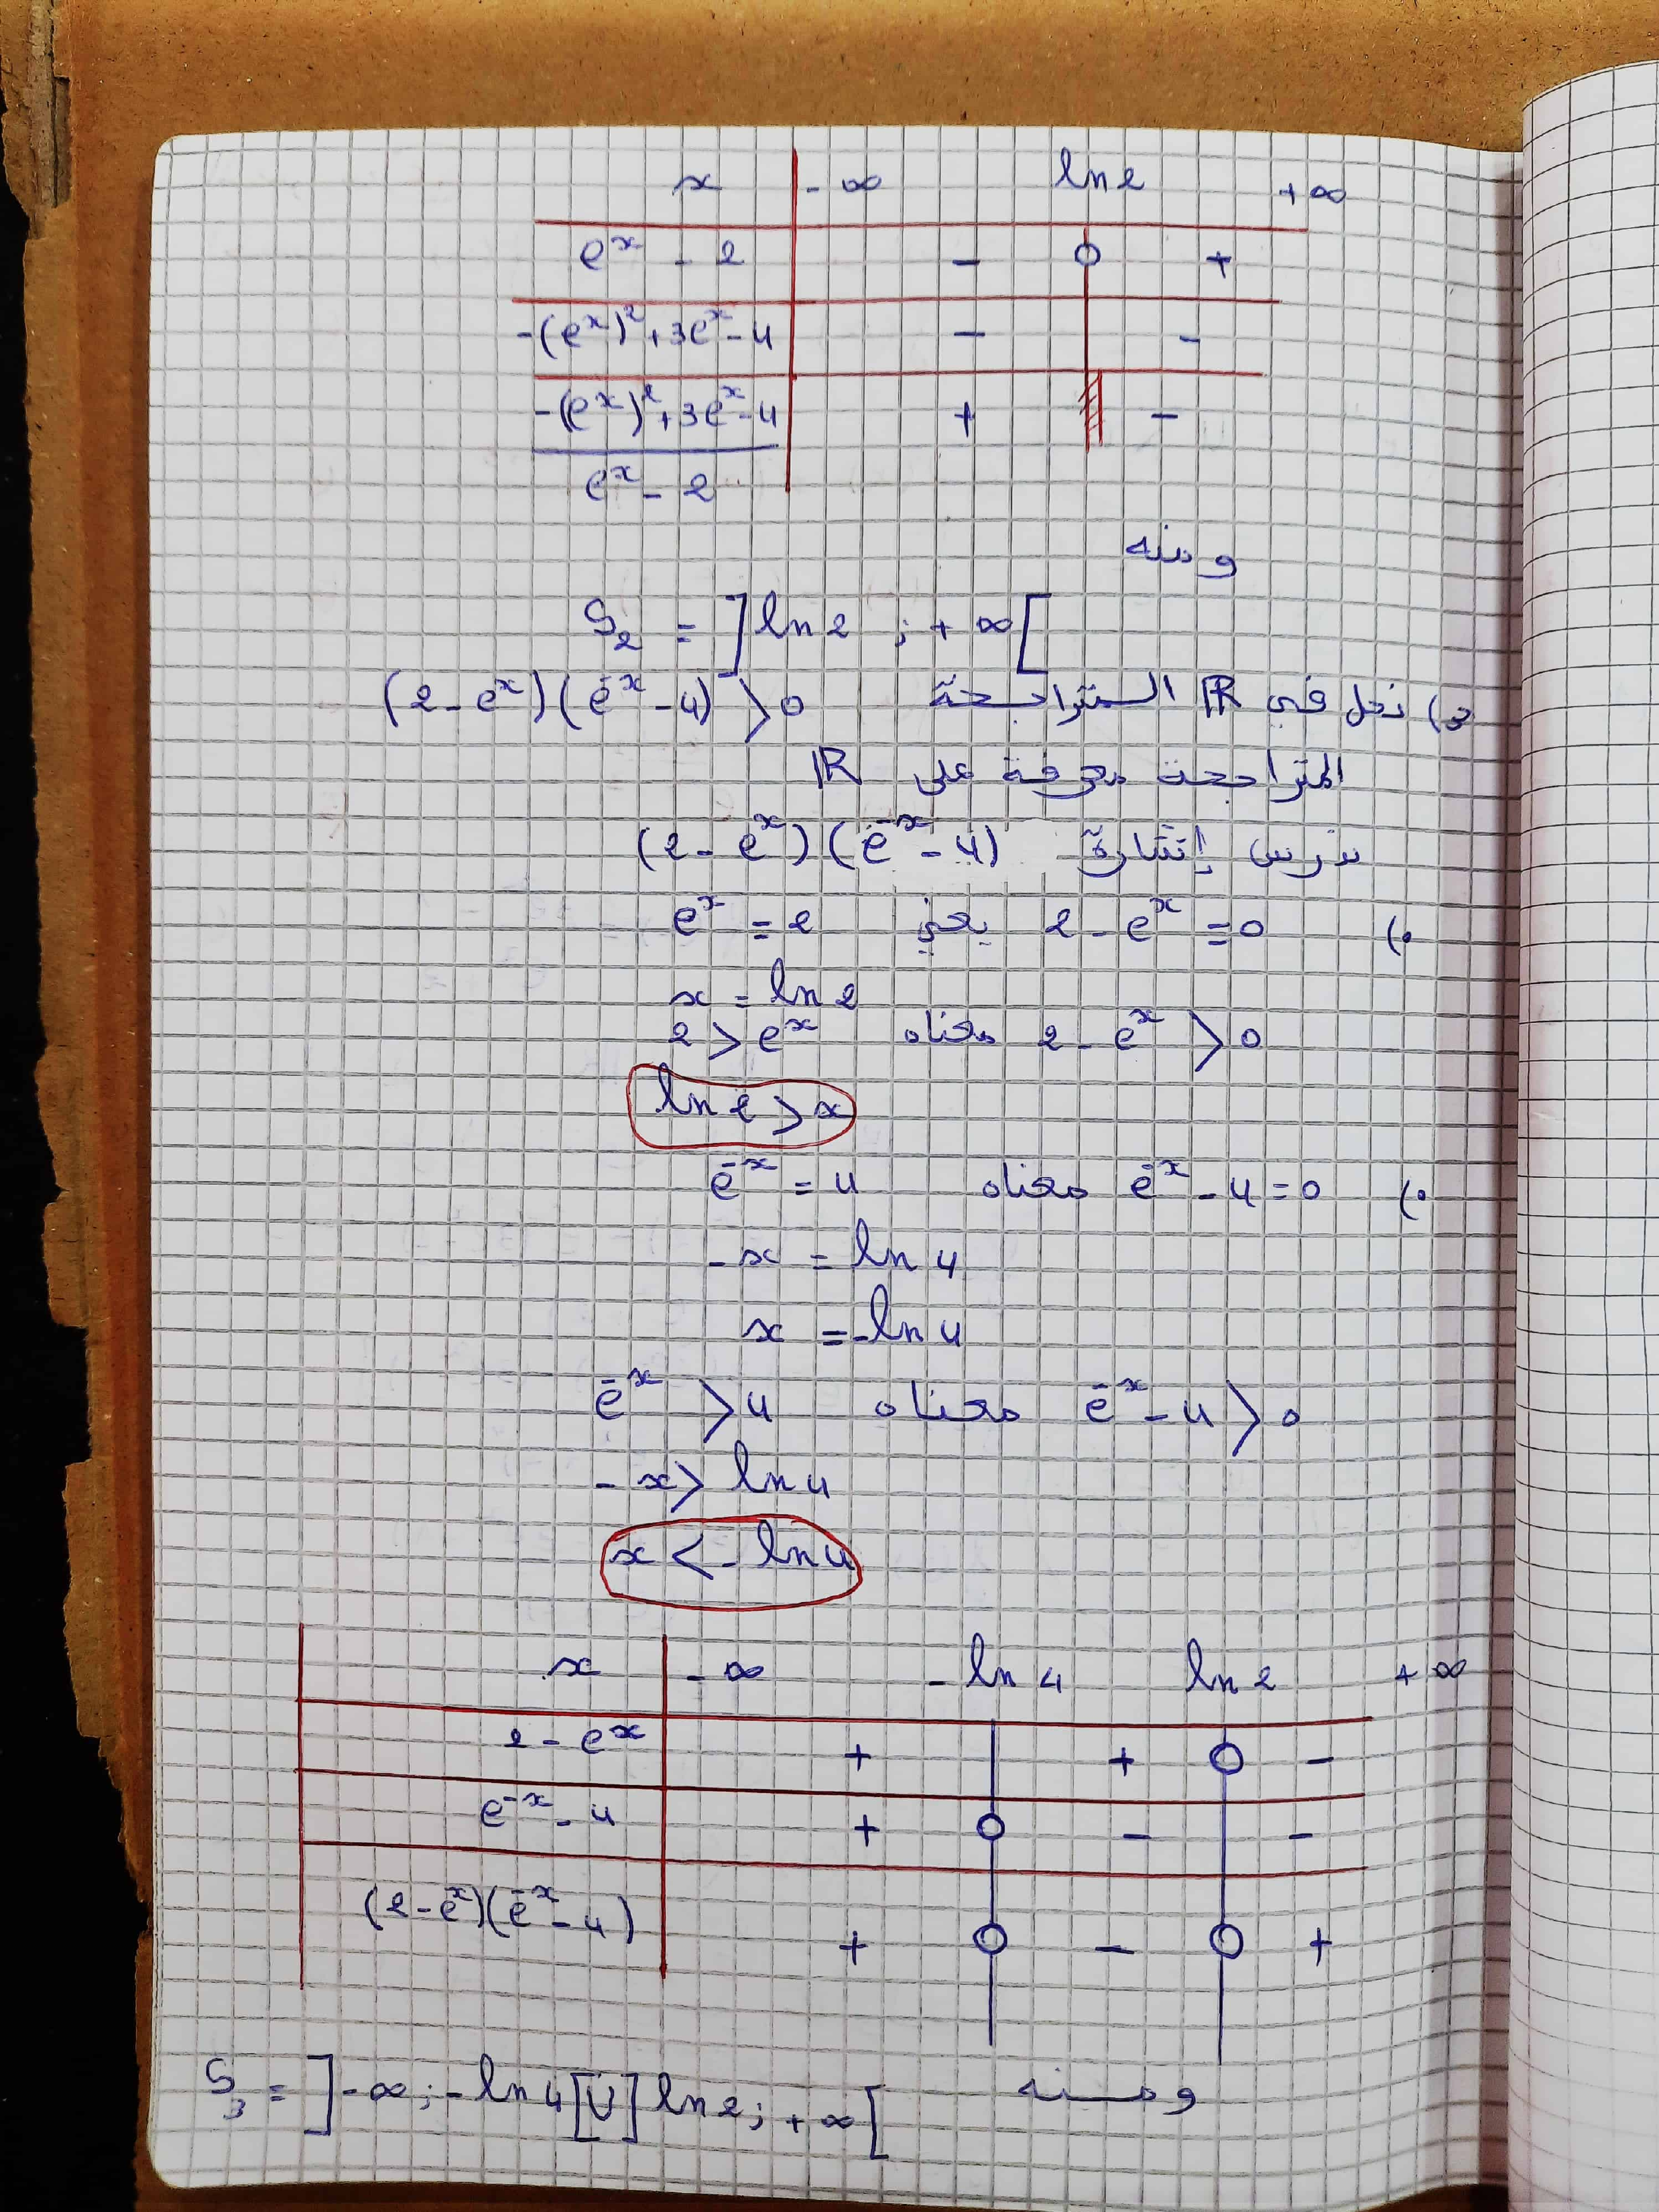 x -∞ ln2 +∞
e^x - 2 - 0 +
-(e^x)^2+3e^x-4 - -
-(e^x)^2+3e^x-4 + -
e^x - 2
ومنه
S_2 = ]ln2 ; +∞[
3) نحل في ℝ المتراجحة (2-e^x)(e^-x -4) > 0
المتراجحة معرفة على ℝ
ندرس إشارة (2-e^x)(e^-x -4)
•) 2-e^x = 0 يعني e^x = 2
x = ln2
2-e^x > 0 معناه 2 > e^x
ln2 > x
•) e^-x -4=0 معناه e^-x = 4
-x = ln4
x = -ln4
e^-x -4 > 0 معناه e^-x > 4
-x > ln4
x < -ln4
x -∞ -ln4 ln2 +∞
2-e^x + + 0 -
e^-x -4 + 0 - -
(2-e^x)(e^-x -4) + 0 - 0 +
ومنه
S_3 = ]-∞;-ln4[∪]ln2;+∞[